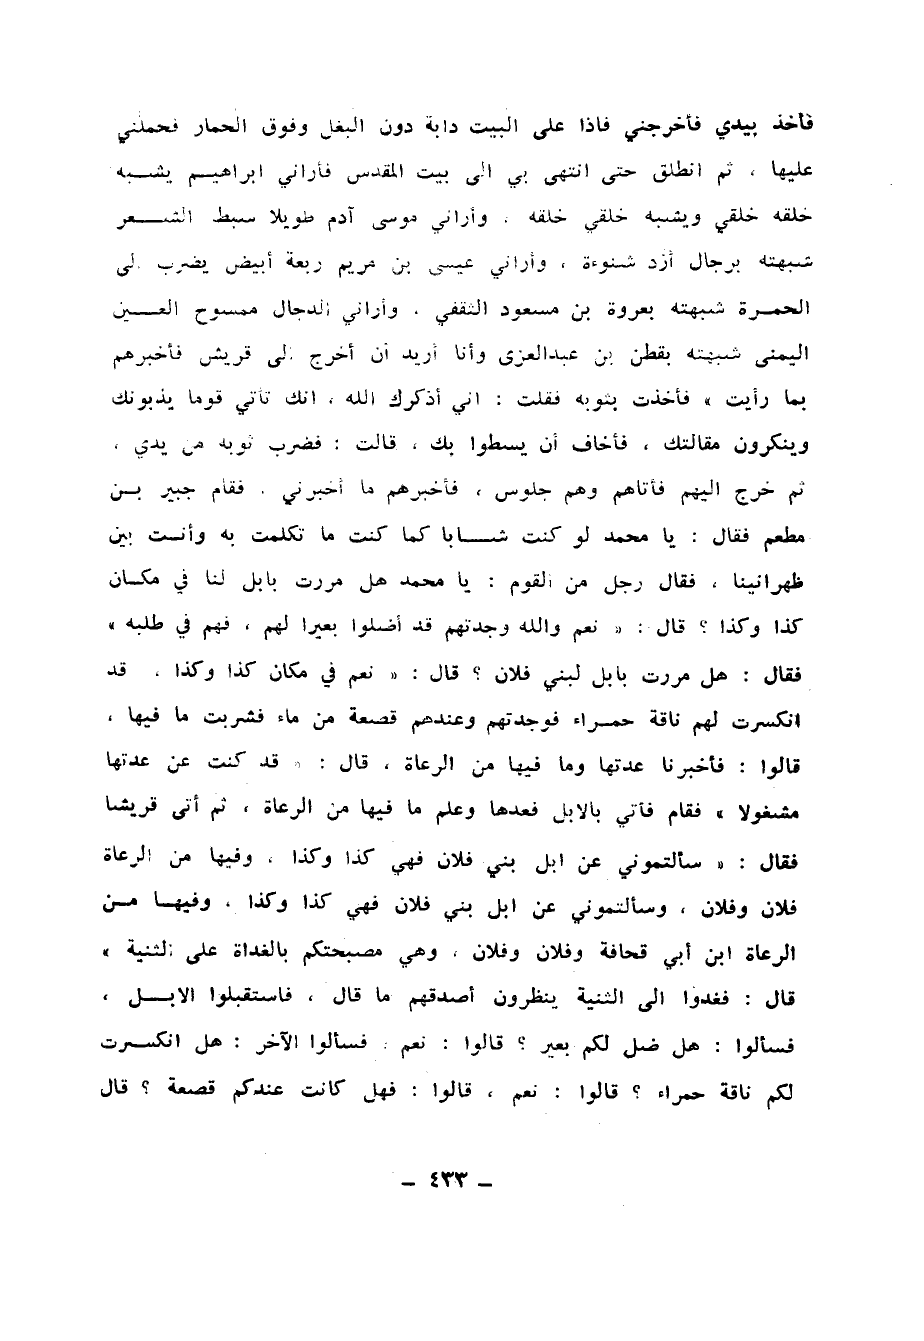 فأخذ بيدي فأخرجني فاذا على البيت دابة دون البغل وفوق الحمار فحملني
عليها ، ثم انطلق حتى انتهى بي الى بيت المقدس فأراني ابراهيم يشبه
خلقه خلقي ويشبه خلقي خلقه . وأراني موسى آدم طويلا سبط الشعر
شبهته برجال أزد شنوءة ، وأراني عيسى بن مريم ربعة أبيض يضرب الى
الحمرة شبهته بعروة بن مسعود الثقفي . وأراني الدجال ممسوح العين
اليمنى شبهته بقطن بن عبدالعزى وأنا أريد أن أخرج الى قريش فأخبرهم
بما رأيت » فأخذت بثوبه فقلت : اني أذكرك الله ، انك تأتي قوما يذبونك
وينكرون مقالتك ، فأخاف أن يسطوا بك ، قالت : فضرب ثوبه من يدي ،
ثم خرج اليهم فأتاهم وهم جلوس ، فأخبرهم ما أخبرني . فقام جبير بن
مطعم فقال : يا محمد لو كنت شابا كما كنت ما تكلمت به وأنت بين
ظهرانينا ، فقال رجل من القوم : يا محمد هل مررت بابل لنا في مكان
كذا وكذا ؟ قال : « نعم والله وجدتهم قد أضلوا بعيرا لهم ، فهم في طلبه »
فقال : هل مررت بابل لبني فلان ؟ قال : « نعم في مكان كذا وكذا ، قد
انكسرت لهم ناقة حمراء فوجدتهم وعندهم قصعة من ماء فشربت ما فيها ،
قالوا : فأخبرنا عدتها وما فيها من الرعاة ، قال : « قد كنت عن عدتها
مشغولا » فقام فآتي بالابل فعدها وعلم ما فيها من الرعاة ، ثم أتى قريشا
فقال : « سألتموني عن ابل بني فلان فهي كذا وكذا ، وفيها من الرعاة
فلان وفلان ، وسألتموني عن ابل بني فلان فهي كذا وكذا ، وفيها من
الرعاة ابن أبي قحافة وفلان وفلان ، وهي مصبحتكم بالغداة على الثنية »
قال : فغدوا الى الثنية ينظرون أصدقهم ما قال ، فاستقبلوا الابل ،
فسألوا : هل ضل لكم بعير ؟ قالوا : نعم . فسألوا الآخر : هل انكسرت
لكم ناقة حمراء ؟ قالوا : نعم ، قالوا : فهل كانت عندكم قصعة ؟ قال
– ٤٣٣ –